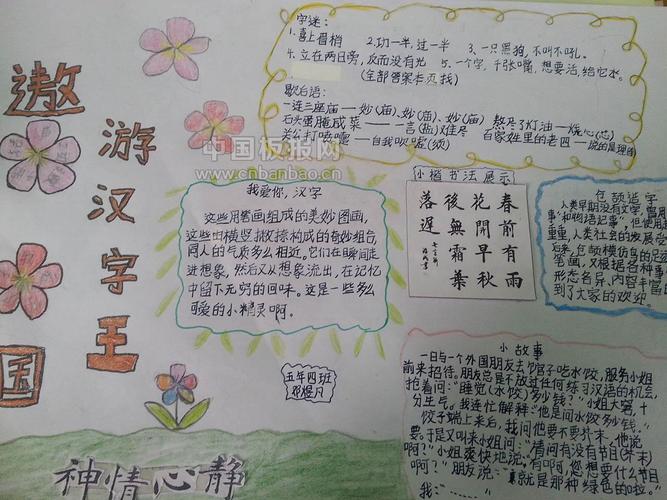 遨
游
汉
字
王
国
字迷：
1.喜上眉梢 2.功一半，过一半 3、一只黑狗，不叫不吼。
4.立在两日旁，反而没有光 5.一个字，千张嘴，想要活，给它水。
(全部答案本页找)
歇后语：
一连三座庙——妙(庙)、妙(庙)、妙(庙) 熬尽了灯油——烧心(芯)
石头蛋腌咸菜——一言(盐)难尽 百家姓里的老四——说的是理
关公打喷嚏——自我吹嘘(须)
中国板报网
www.cnbanbao.cn
我爱你，汉字
这些用笔画组成的美妙图画，
这些由横竖撇捺构成的奇妙组合，
同人的气质多么相近。它们在瞬间走
进想象，然后又从想象流出，在记忆
中留下无穷的回味。这是一些多么
可爱的小精灵啊。
小楷书法展示
春前有雨
花開早秋
後無霜葉
落遲
仓颉造字
人类早期没有文字，曾用
事”和“物语记事”，但使用
重重，人类社会的发展
后来，仓颉模仿鸟的足迹
笔画，又根据各种事
形态各异、内容丰富的
到了大家的欢迎
五年四班
小故事
一日与一个外国朋友去饺子馆吃水饺，服务小姐
前来招待。朋友总是不放过任何练习汉语的机会，
抢着问：“睡觉(水饺)多少钱？”小姐大窘，十
分生气。我连忙解释：“他是问水饺多少钱。”
饺子端上来后，我问他要不要芥末，他说
要。于是又叫来小姐问：“请问有没有节目(芥末)
啊？”小姐爽快地说：“有啊，您想要什么节目
啊？”朋友说：“就是那种绿色的啦。”
我：……
神情心静